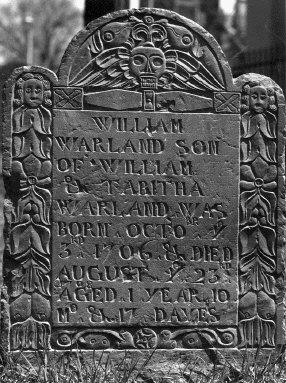 WILLIAM
WARLAND SON
OF WILLIAM
& TABITHA
WARLAND WAS
BORN OCTO Yᵉ
3ᴿᴰ 1706 & DIED
AUGUST Yᵉ 23ᴰ
AGED 1 YEAR 10
Mº & 17 DAYES